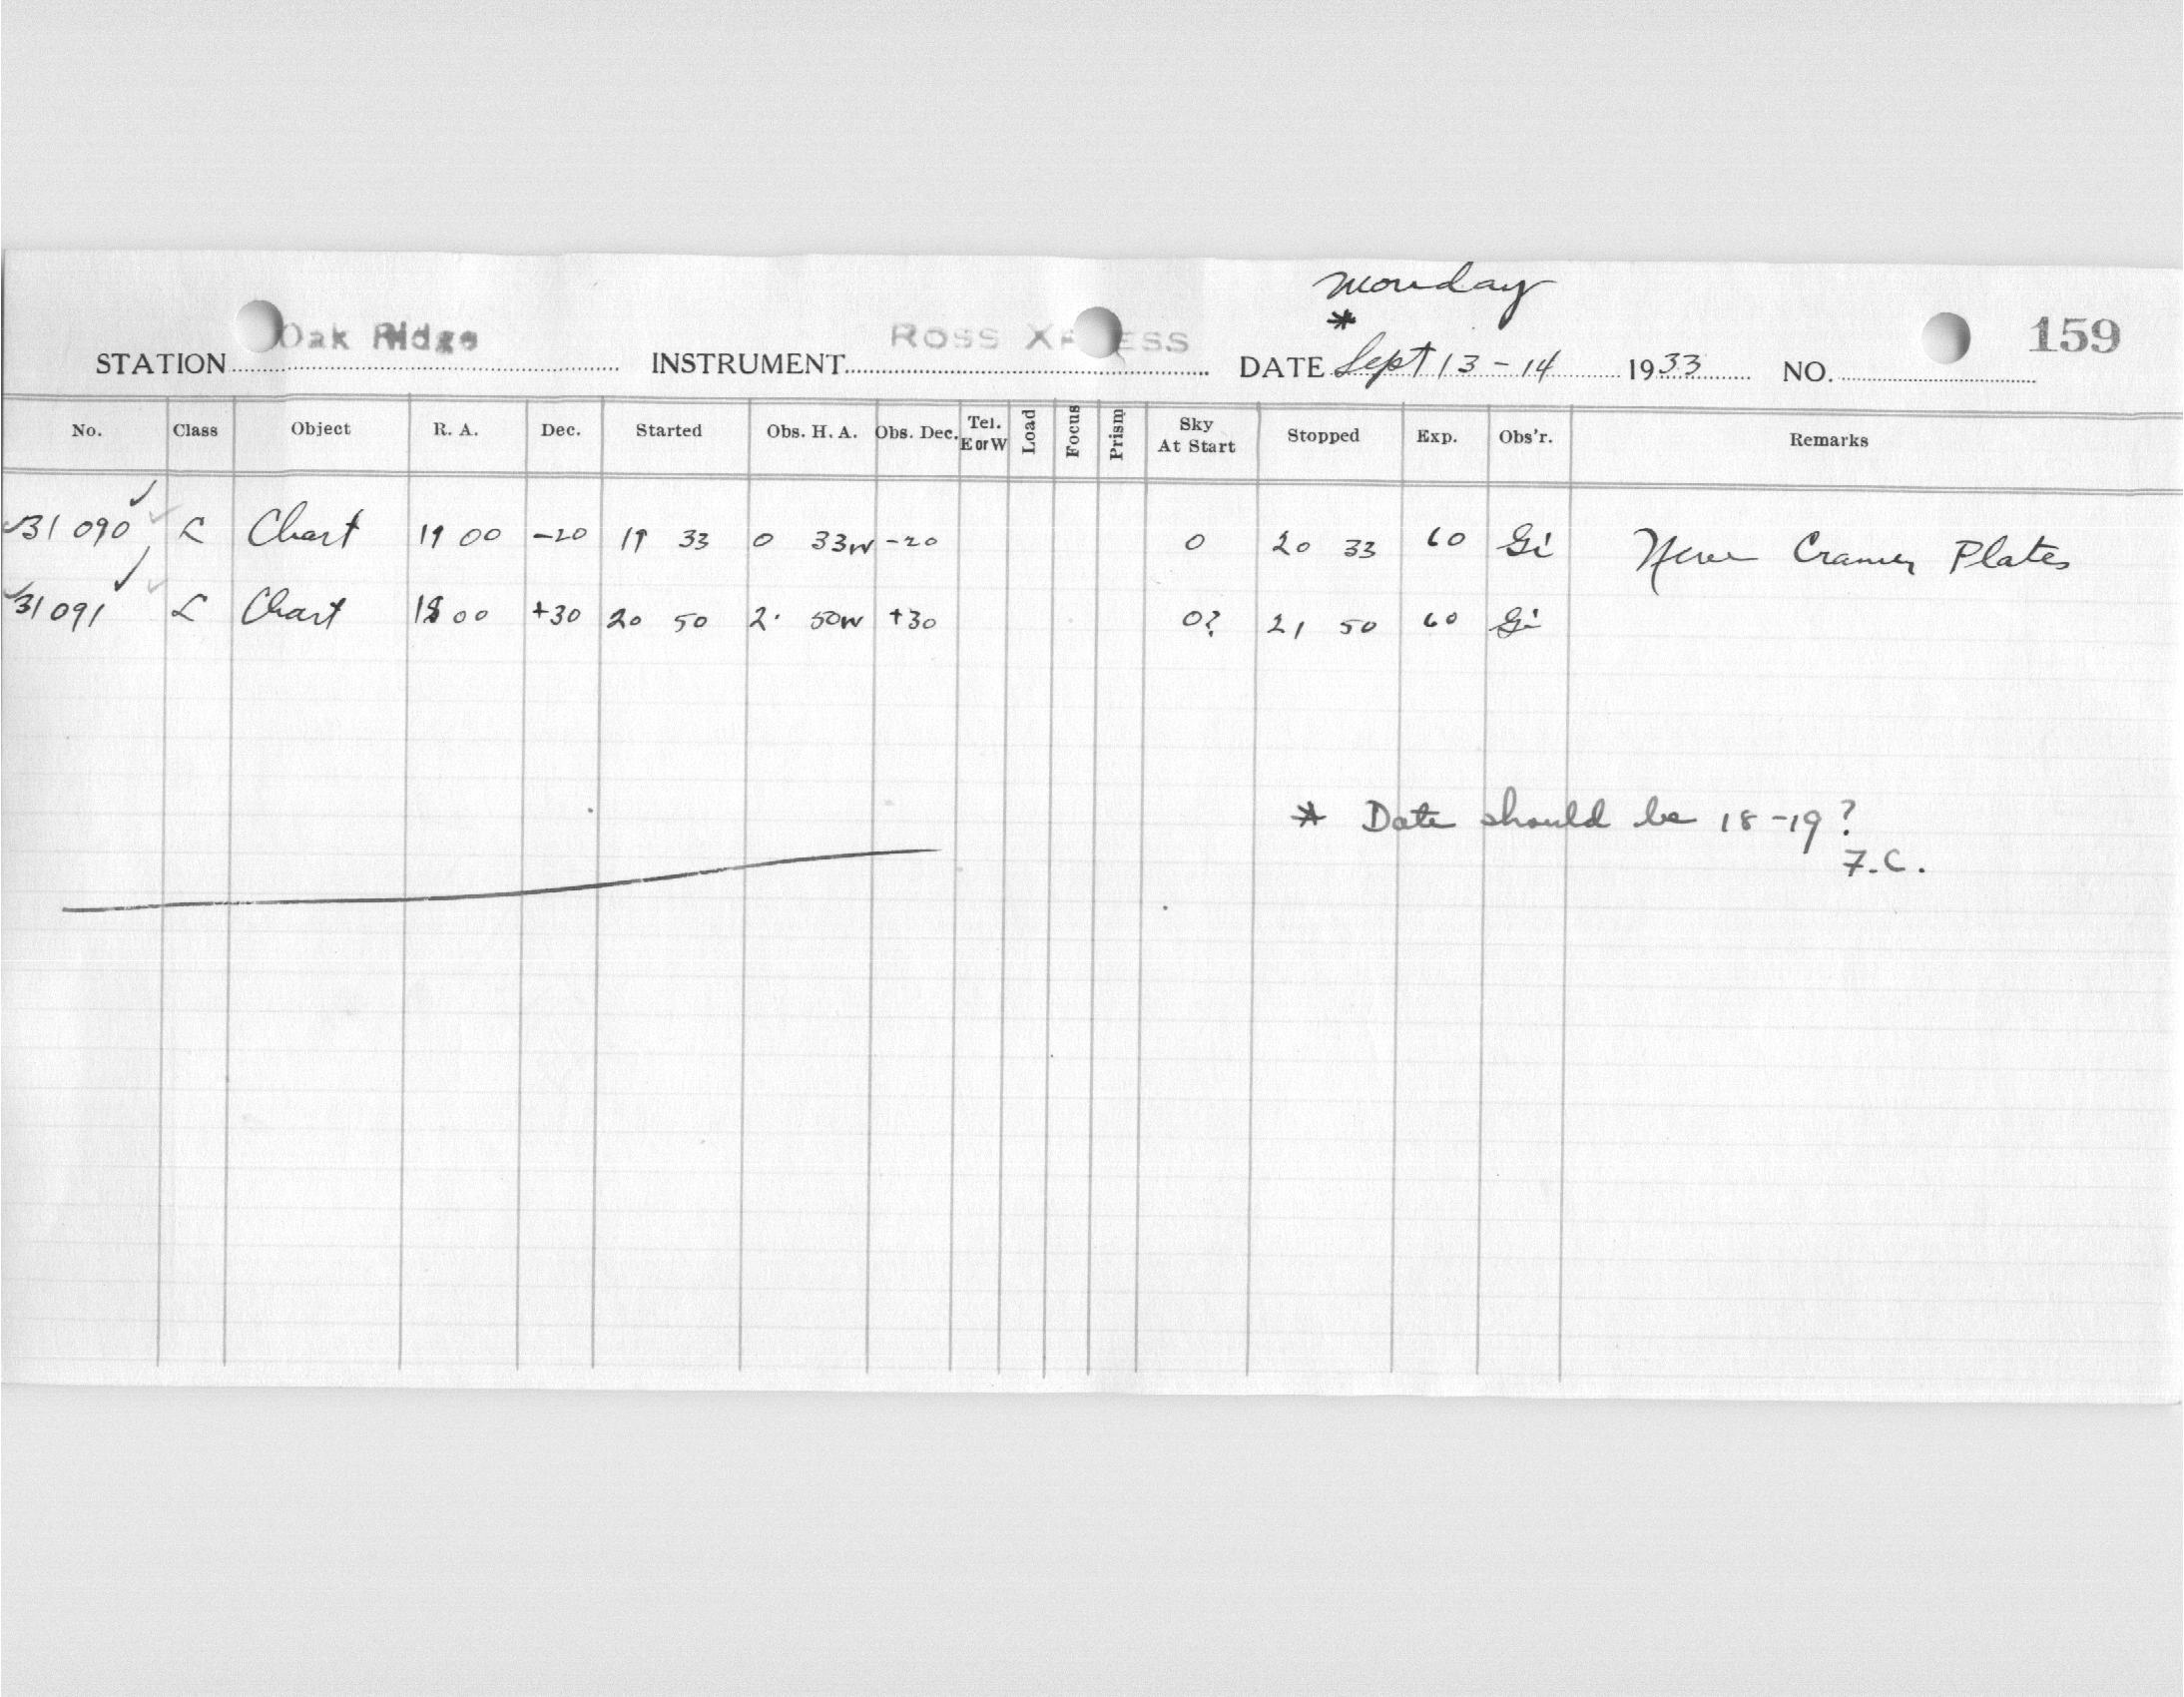 Monday
*
STATION Oak Ridge INSTRUMENT Ross Xpress DATE Sept 13-14 1933 NO. 159
No. Class Object R. A. Dec. Started Obs. H. A. Obs. Dec. Tel. E or W Load Focus Prism Sky At Start Stopped Exp. Obs'r. Remarks
31 090 L Chart 19 00 -20 19 33 0 33W -20 0 20 33 60 Gi New Cramer Plates
31 091 L Chart 18 00 +30 20 50 2 50W +30 0? 21 50 60 Gi
* Date should be 18-19?
F.C.